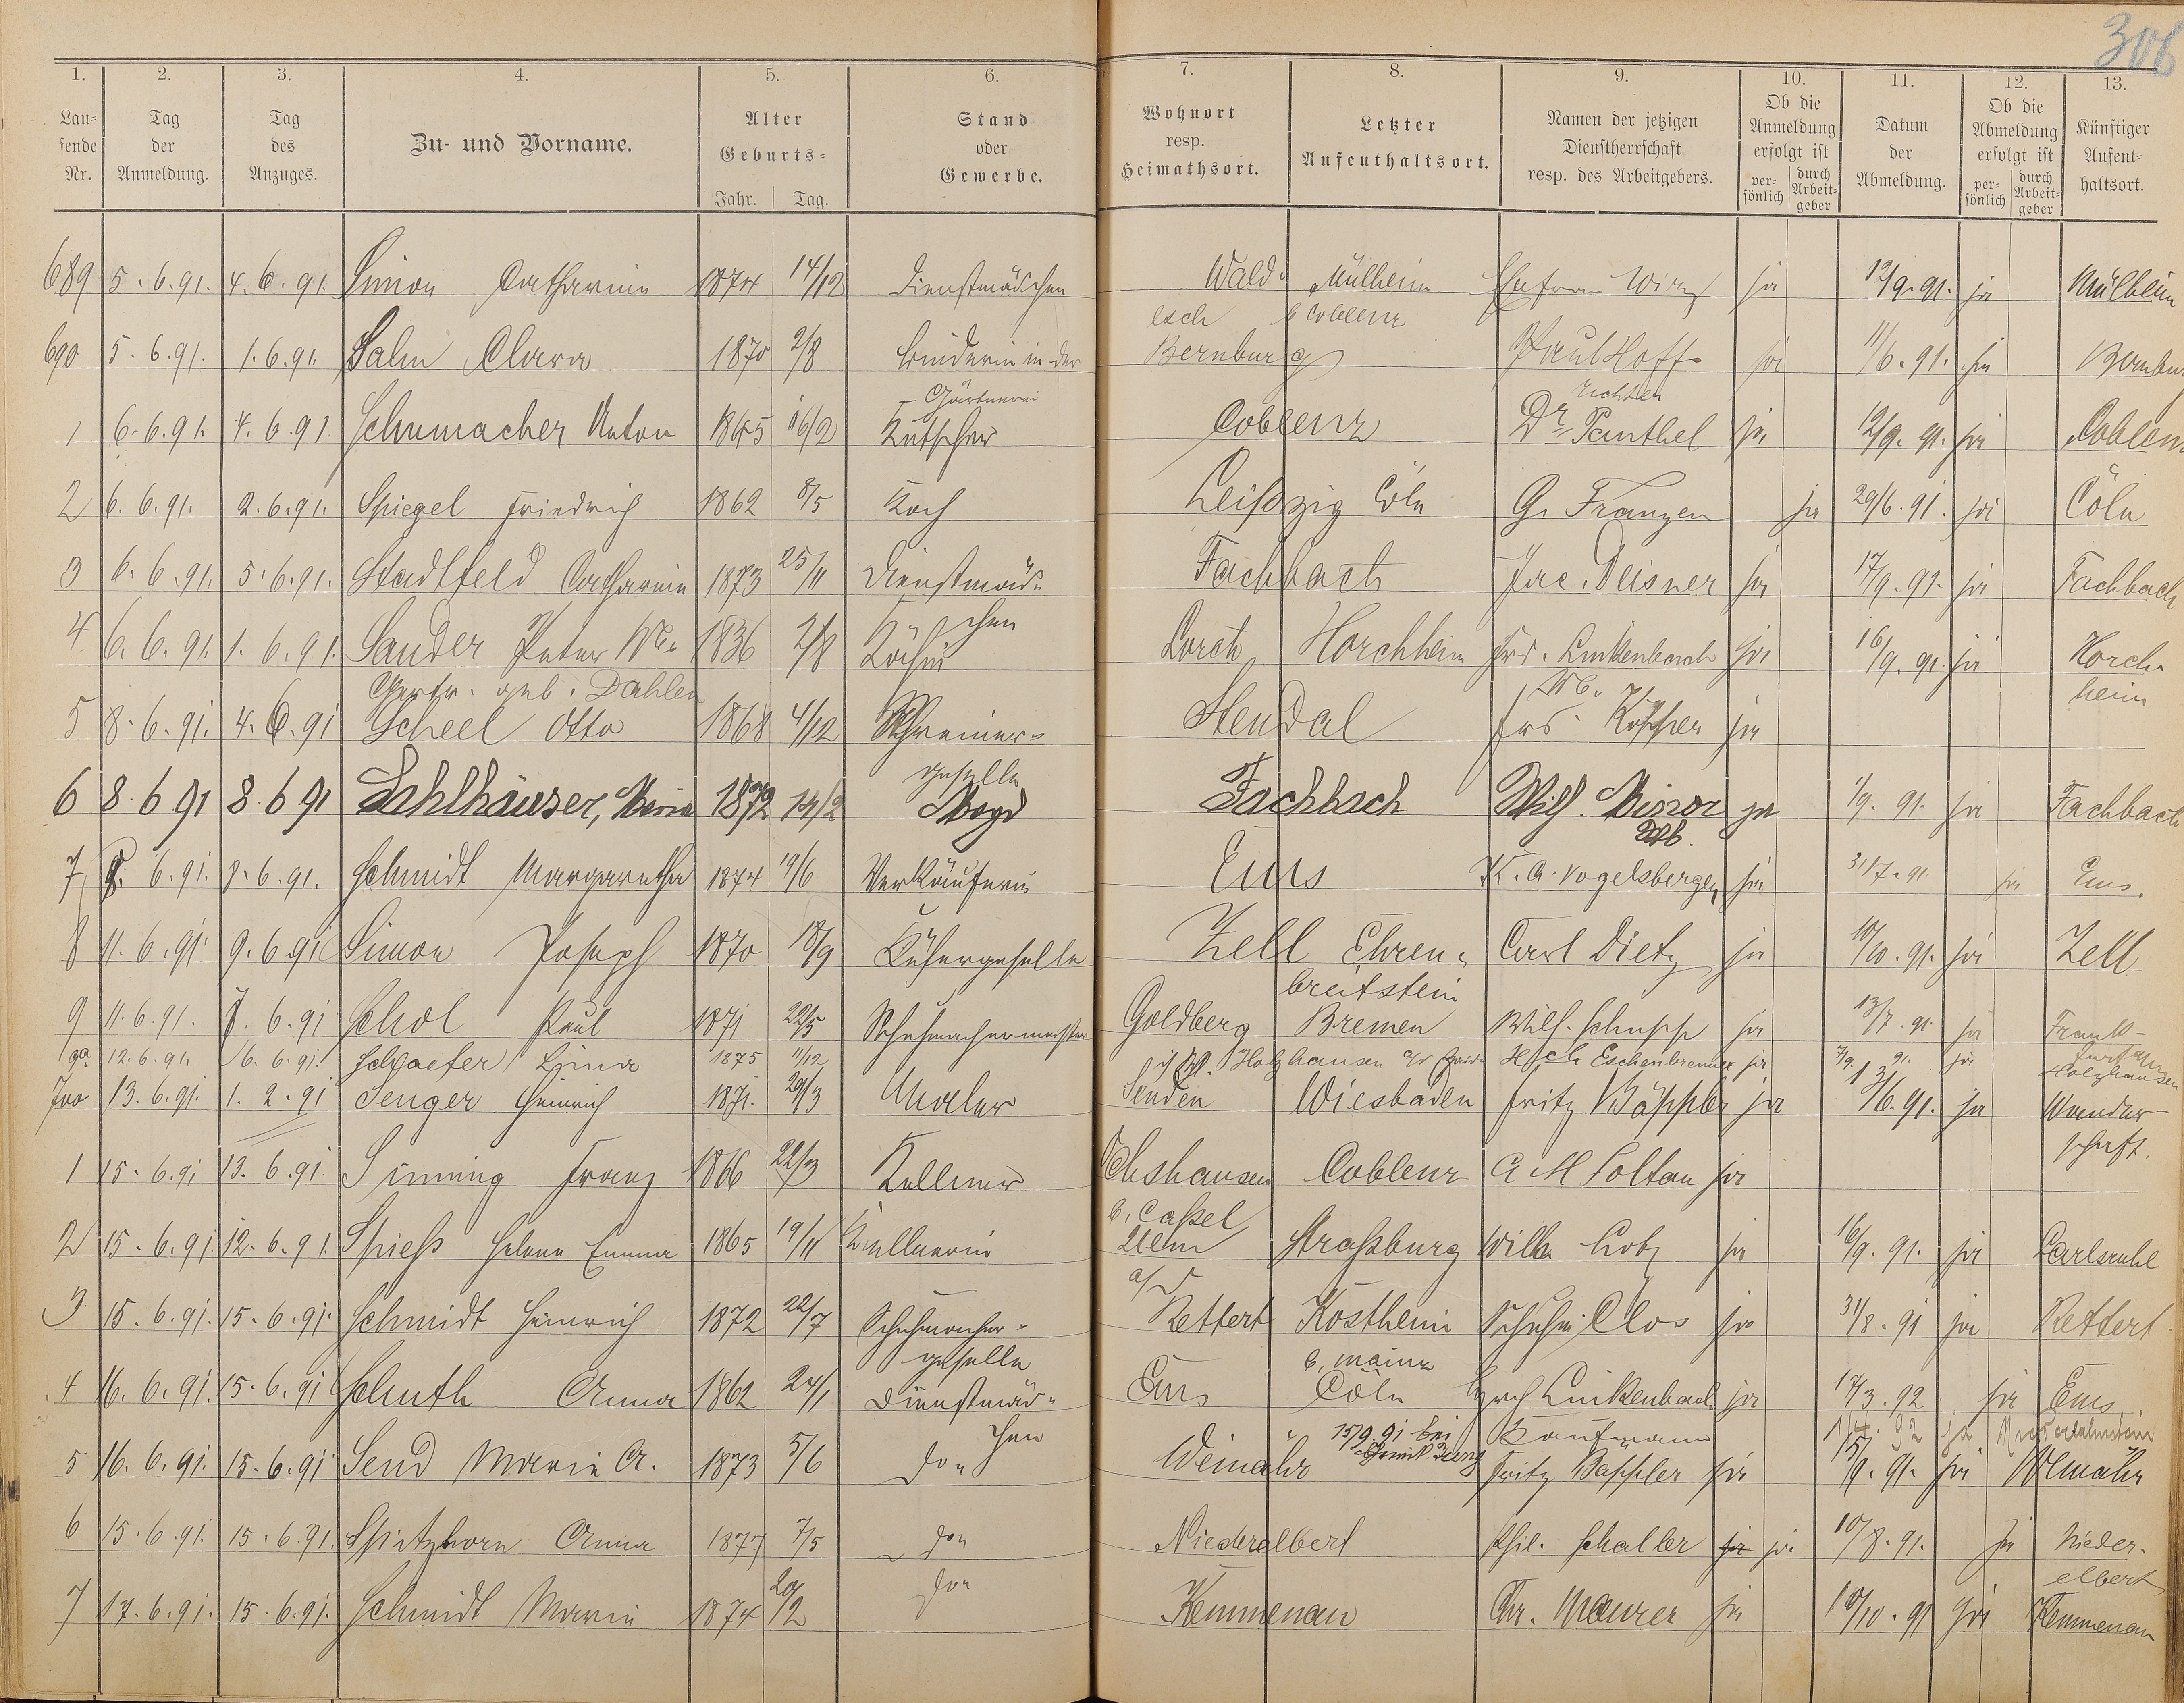 306
1. 2. 3. 4. 5. 6. 7. 8. 9. 10. 11. 12. 13.
Lau=
fende
Nr.
Tag
der
Anmeldung.
Tag
des
Anzuges.
Zu- und Vorname.
Alter
Geburts=
Jahr. Tag.
Stand
oder
Gewerbe.
Wohnort
resp.
Heimathsort.
Letzter
Aufenthaltsort.
Namen der jetzigen
Dienstherrschaft
resp. des Arbeitgebers.
Ob die
Anmeldung
erfolgt ist
per=
sönlich
durch
Arbeit=
geber
Datum
der
Abmeldung.
Ob die
Abmeldung
erfolgt ist
per=
sönlich
durch
Arbeit=
geber
Künftiger
Aufent=
haltsort.
689 5.6.91. 4.6.91. Simon Catharina 1874 14/12 Dienstmädchen Wald- Mülheim Wirz ja 12/9.91. ja Mülheim
esch b Coblenz
690 5.6.91. 1.6.91. Salm Clara 1870 2/8 Binderin in der Bernburg Paul Hoff- ja 11/6.91. ja
Gärtnerei richter
1 6.6.91. 4.6.91. Schumacher Anton 1865 16/2 Kutscher Coblenz Dr Panthel ja 12/9.91. ja Coblenz
2 6.6.91. 2.6.91. Spiegel Friedrich 1862 8/5 Koch Leipzig Cöln G. Franzen ja 29/6.91. ja Cöln
3 6.6.91. 5.6.91. Stadtfeld Catharina 1873 25/11 Dienstmäd- Fachbach Jac. Deisner ja 17/9.91. ja Fachbach
chen
4 6.6.91. 1.6.91. Sander Peter Wwe 1836 2/8 Köchin Lorch Horchheim Frd. Linkenbach ja 16/9.91. ja Horch-
Gertr. geb. Dahlen Wb. heim
5 8.6.91. 4.6.91 Scheel Otto 1868 4/12 Schreiner- Stendal Frd. Küpper ja
geselle
6 8.6 91 8.6 91 Sahlhäuser, 1872 14/2 Magd Fachbach Wilh. ja 1/9.91. ja Fachbach
7 8.6.91. 8.6.91. Schmidt Margaretha 1874 19/6 Verkäuferin Ems K. A. Vogelsberger ja 31/7.91 ja Ems.
8 11.6.91. 9.6.91 Simon Joseph 1870 18/9 Küfergeselle Zell Ehren- Carl Dietz ja 10/10.91. ja Zell
breitstein
9 11.6.91. 8.6.91 Schol Paul 1871 20/5 Schuhmachermeister Goldberg Bremen Wilh. Schupp ja 13/7.91. ja Frank-
furt a/M
9a 12.6.91. 6.6.91. Schaefer Lina 1875 11/12 Holzhausen a/ Haid Hch Eschenbrenner ja 7/9.91. ja Holzhausen
700 13.6.91. 1.2.91 Senger Heinrich 1871. 20/3 Maler Senden Wiesbaden Fritz Bäppler ja ja Wander-
schaft.
1 15.6.91 13.6.91. Sinning Franz 1866 22/3 Kellner Ochshausen Coblenz A M Soltau ja
b. Caßel
2 15.6.91 12.6.91. Spieß Helene Emma 1865 19/11 Kellnerin Ulm Straßburg Wilh. Lotz ja 16/9.91. ja Carlsruhe
a/D
3 15.6.91. 15.6.91. Schmidt Heinrich 1872 22/7 Schuhmacher- Rettert Kostheim Schuhm. Clos ja 31/8.91 ja Rettert
geselle b. Mainz
4 16.6.91. 15.6.91 Schuth Anna 1862 24/1 Dienstmäd- Ems Cöln Linkenbach ja 17/3.92 ja Ems
chen 15/9.91 bei Kaufmann 92 ja
5 16.6.91. 15.6.91 Send Maria A. 1873 5/6 do Weinähr Fritz Bäppler ja 15/9.91. ja Weinähr
6 15.6.91. 15.6.91. Spitzhorn Anna 1877 7/5 do Niederelbert Phil. Schaller ja ja 10/8.91. ja Nieder-
elbert
7 17.6.91. 15.6.91. Schmidt Maria 1874 20/2 do Kemmenau Chr. Maurer ja 10/10.91 ja Kemmenau